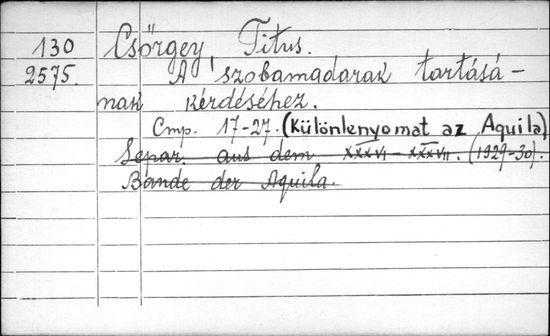 130 Csörgey, Titus.
2575. A szobamadarak tartásá-
nak kérdéséhez.
Cmp. 17-27. (Különlenyomat az Aquila)
Separ. aus dem XXXVI-XXXVII. (1929-30).
Bande der Aquila.